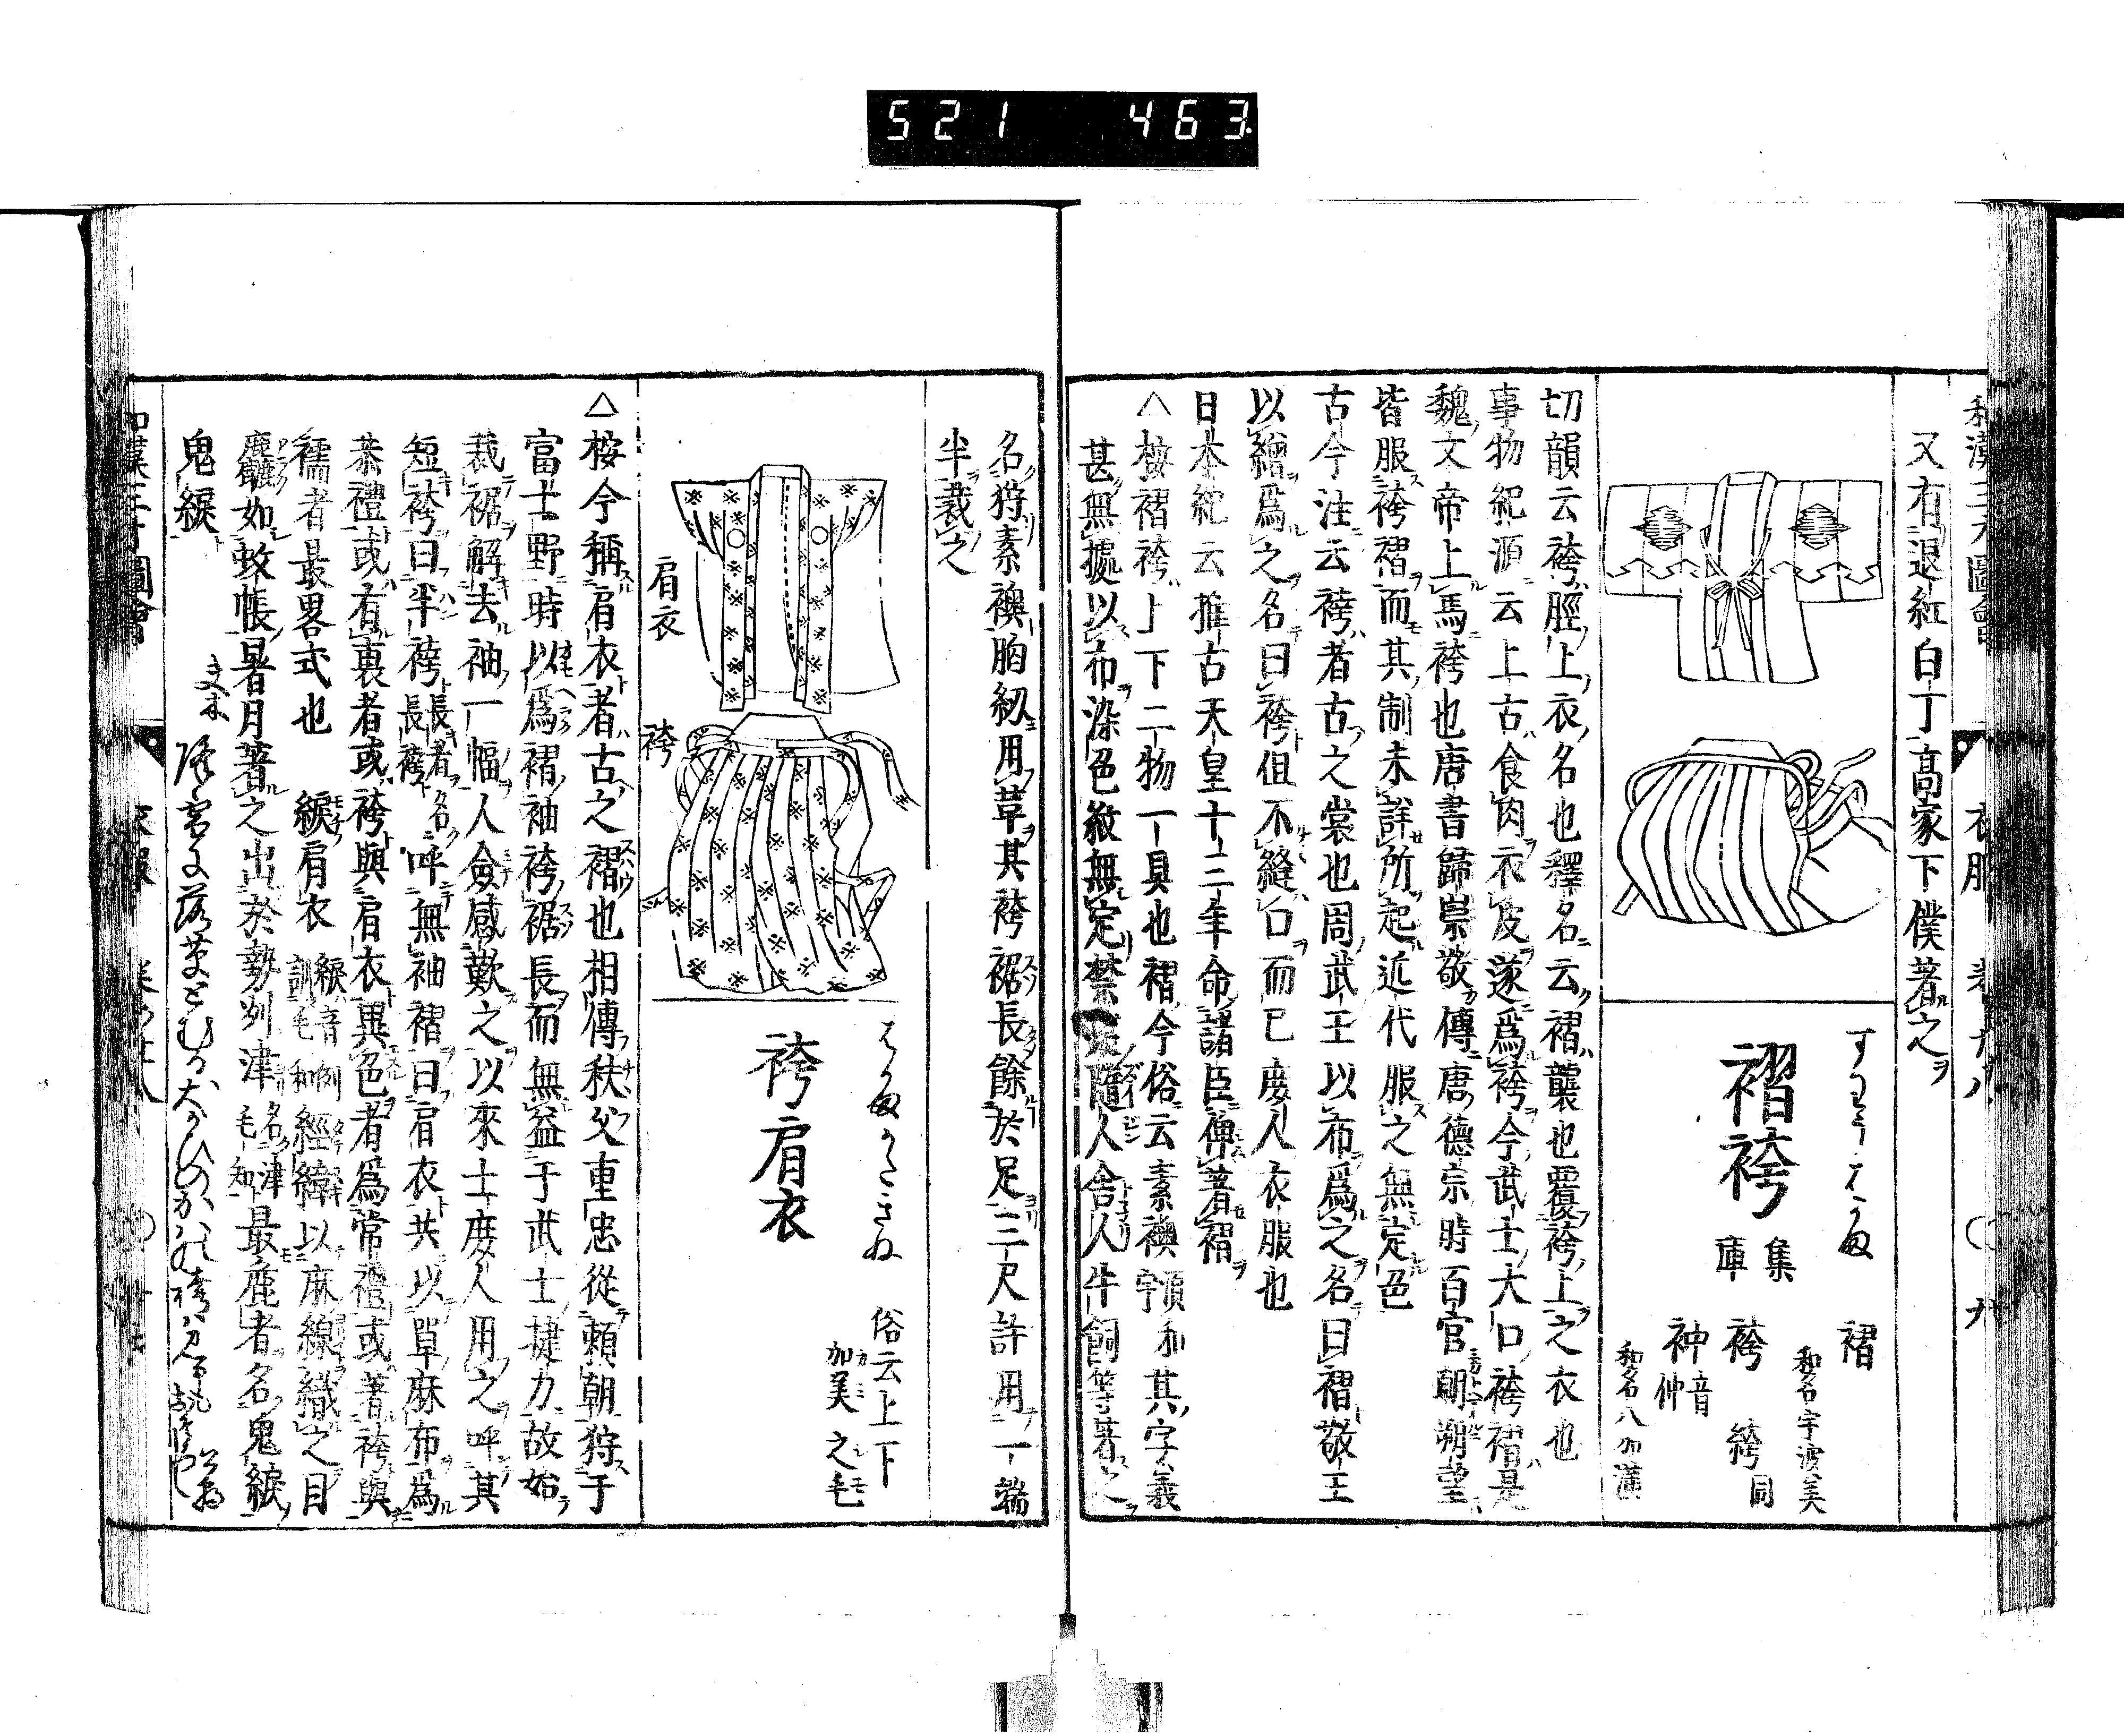 521 463
和漢三才圖會 衣服 卷廿八 〇 廿
又有退紅白丁高家下僕著之
すはう はかま
褶袴
集庫
褶
和名宇波美
袴 絝 同
衶 音仲
和名八加萬
切韻云袴脛上衣名也釋名云褶襲也覆袴上之衣也
事物紀源云上古食肉衣皮遂爲袴今武士大口袴褶是
魏文帝上馬袴也唐書歸崇敬傳唐德宗時百官朝朔望
皆服袴褶而其制未詳所起近代服之無定色
古今注云袴者古之裳也周武王以布爲之名曰褶敬王
以繒爲之名曰袴但不縫口而已庶人衣服也
日本紀云推古天皇十三年命諸臣俾著褶
△按褶袴上下二物一具也褶今俗云素襖 字和其字義
甚無據以布染色紋無定禁 隨人舍人牛飼等著之
名狩素襖胸紐用草其袴裾長餘於足三尺許用一端
半裁之
肩衣
袴
はかまかたきぬ
袴肩衣
俗云上下
加美之毛
△按今稱肩衣者古之褶也相傳秩父重忠從頼朝狩于
富士野時以爲褶袖袴裾長而無益于武士捷力故始
裁裾解去袖一幅人僉感歎之以來士庶人用之呼其
短袴曰半袴長者名長袴呼無袖褶曰肩衣共以單麻布爲
恭禮或有裏者或袴與肩衣異色者爲常禮或著袴與
襦者最畧式也 綟肩衣 綟音例訓毛知 經緯以麻線織之目
麤如蚊帳暑月著之出於勢州津 名津毛知 最麁者名鬼綟
鬼綟
和漢三才圖會 衣服 卷第廿八 〇